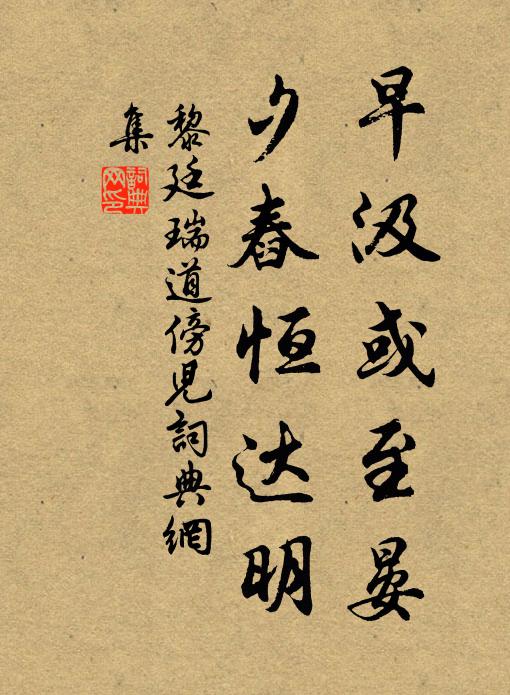 早汲或至晏
夕舂恒达明
黎廷瑞道傍儿詞典網
集
詞典網印